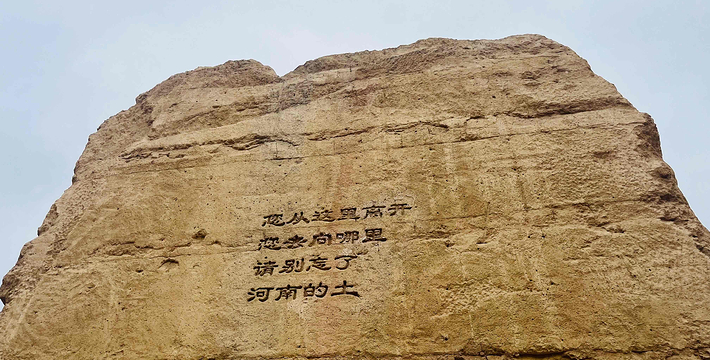 您从这里离开
您去向哪里
请别忘了
河南的土